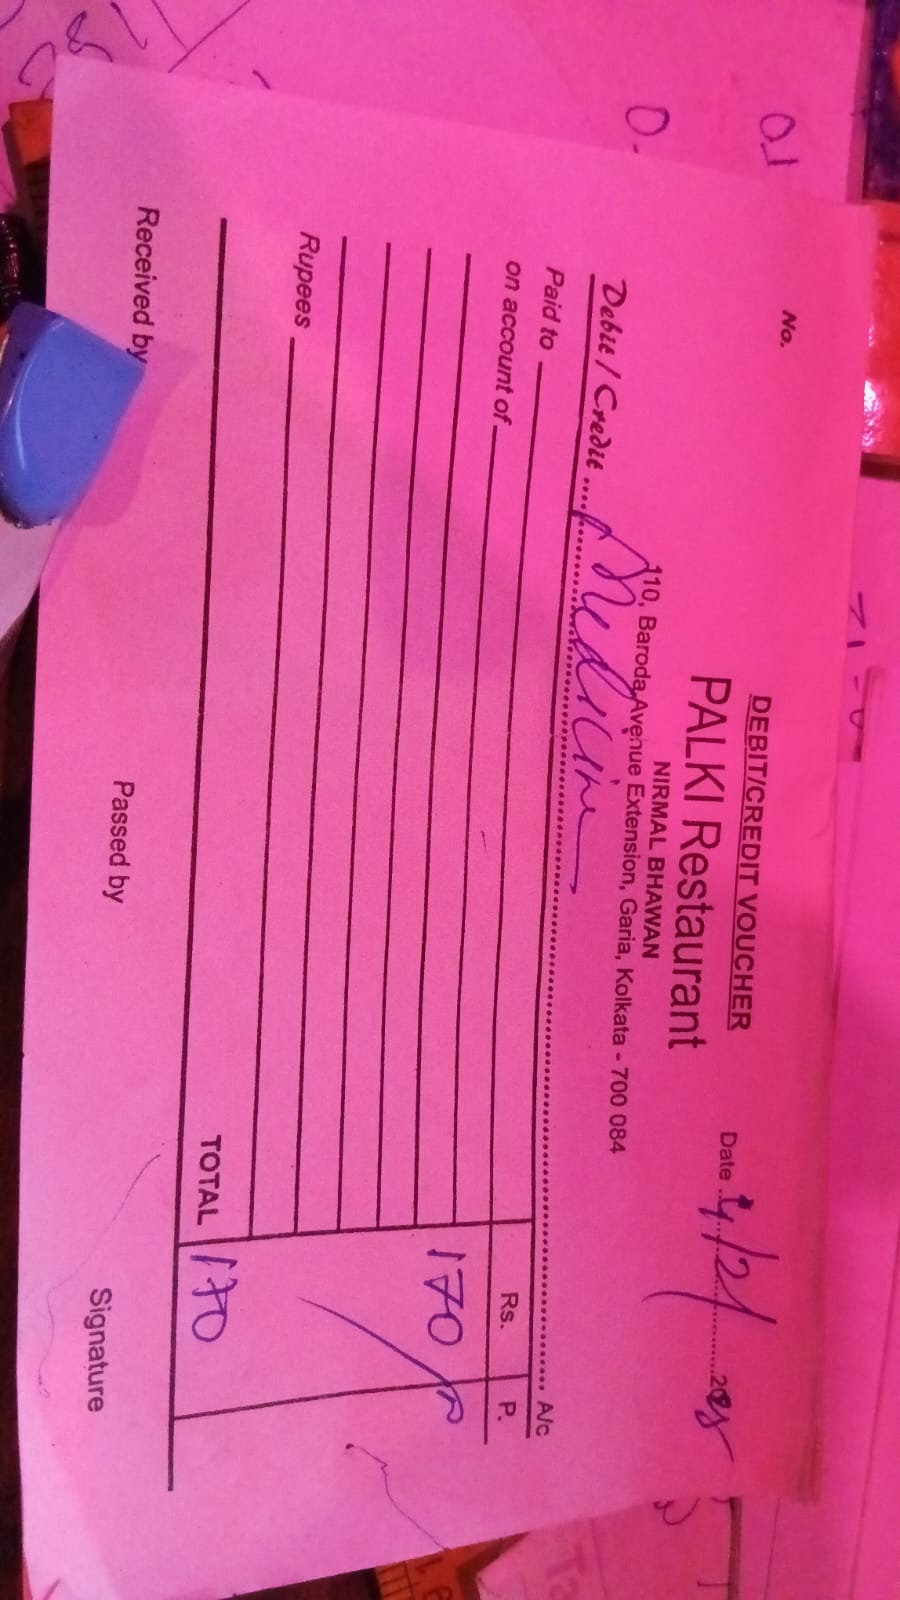 DEBIT/CREDIT VOUCHER
No.
PALKI Restaurant
Date
NIRMAL BHAWAN
110, Baroda Avenue Extension, Garia, Kolkata - 700 084
Debit / Credit ........ Medicine ........ A/c
Paid to
on account of
Rs. P.
170
Rupees
TOTAL 170
Received by
Passed by
Signature